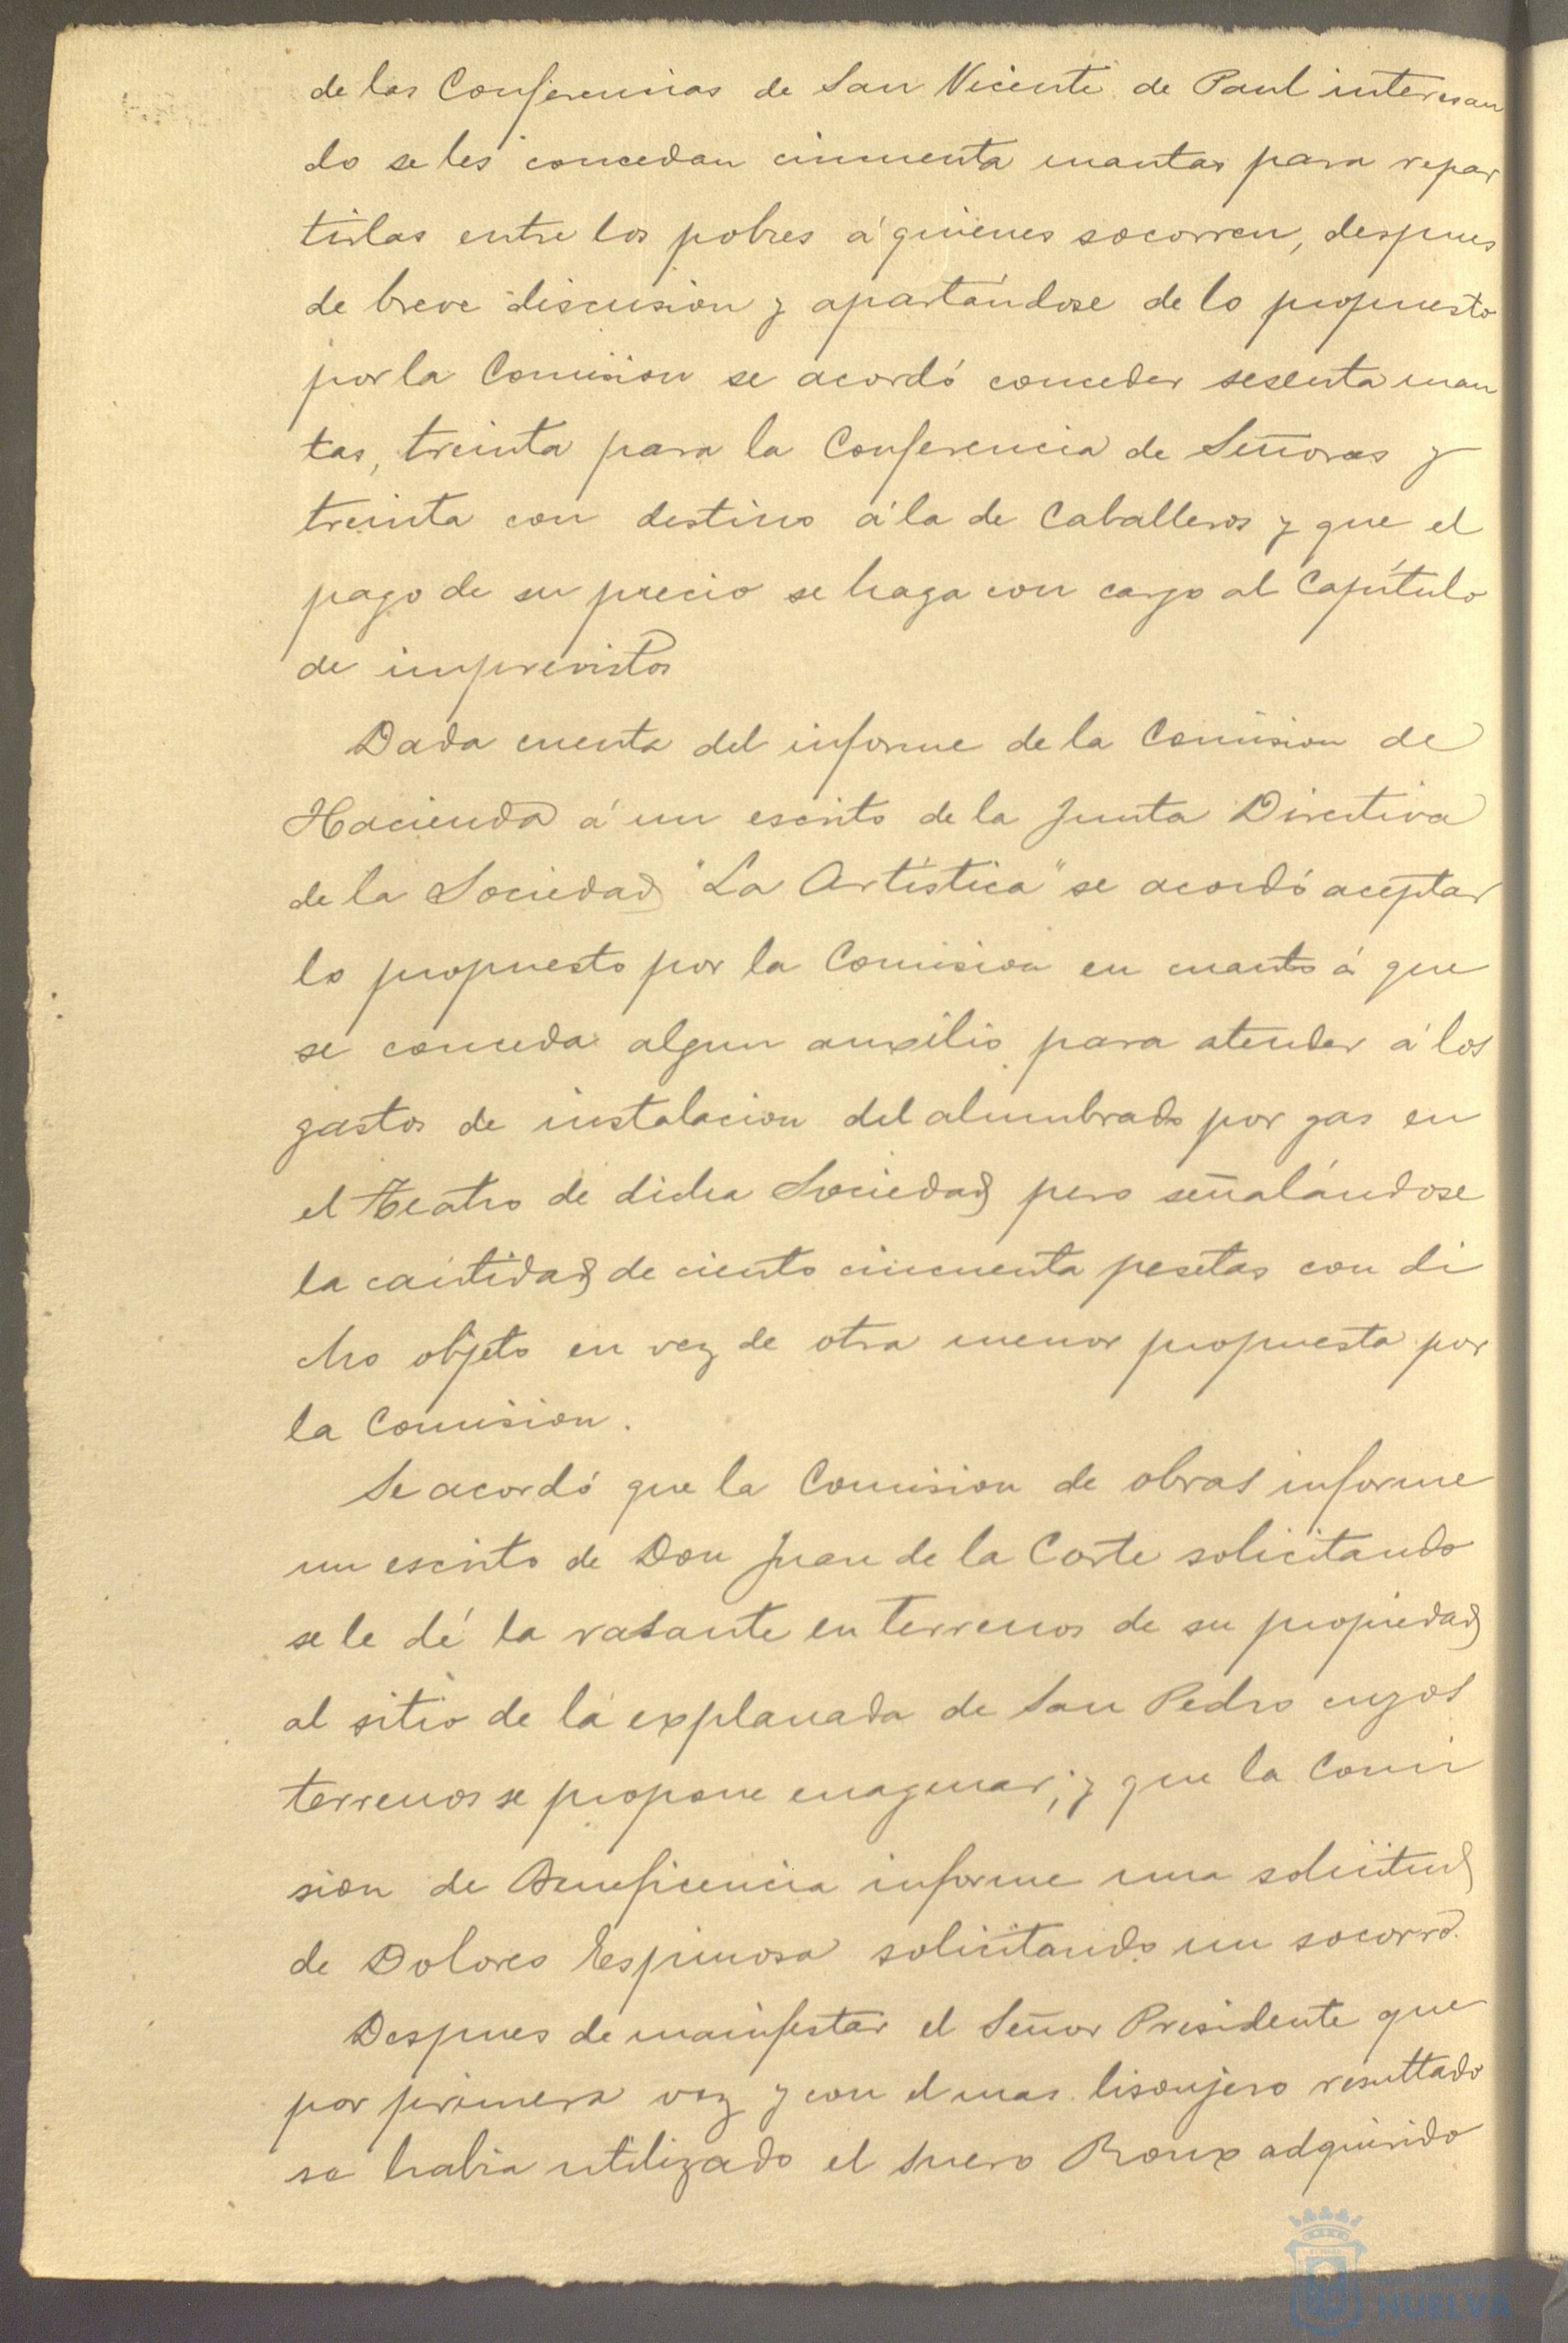 de las Conferencias de San Vicente de Paul interesan
do se les concedan cincuenta mantas para repar
tirlas entre los pobres á quienes socorren, despues
de breve discusion y apartándose de lo propuesto
por la Comision se acordó conceder sesenta man
tas, treinta para la Conferencia de Señoras y
treinta con destino á la de Caballeros y que el
pago de su precio se haga con cargo al Capítulo
de imprevistos
Dada cuenta del informe de la Comision de
Hacienda á un escrito de la Junta Directiva
de la Sociedad "La Artística" se acordó aceptar
lo propuesto por la Comision en cuanto á que
se conceda algun auxilio para atender á los
gastos de instalacion del alumbrado por gas en
el Teatro de dicha Sociedad pero señalándose
la cantidad de ciento cincuenta pesetas con di
cho objeto en vez de otra menor propuesta por
la Comision.
Se acordó que la Comision de obras informe
un escrito de Don Juan de la Corte solicitando
se le dé la rasante en terrenos de su propiedad
al sitio de la explanada de San Pedro cuyos
terrenos se propone enagenar; y que la Comi
sion de Beneficencia informe una solicitud
de Dolores Espinosa solicitando un socorro.
Despues de manifestar el Señor Presidente que
por primera vez y con el mas lisonjero resultado
se habia utilizado el suero Roux adquirido
HUELVA